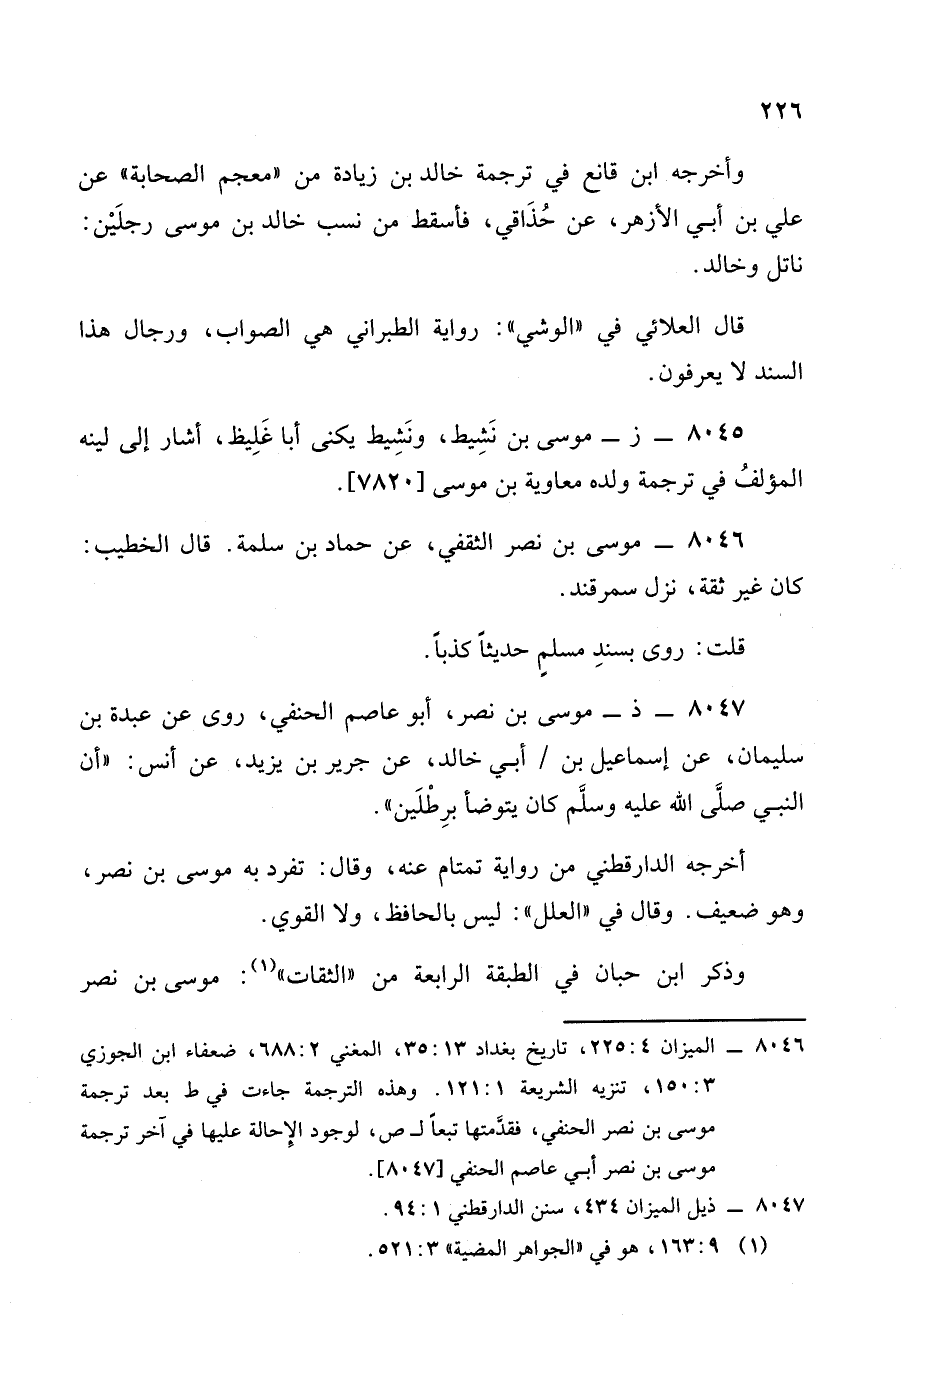 ٢٢٦
وأخرجه ابن قانع في ترجمة خالد بن زيادة من «معجم الصحابة» عن
علي بن أبي الأزهر، عن حُذَاقي، فأسقط من نسب خالد بن موسى رجلَيْن:
ناتل وخالد.
قال العلائي في «الوشي»: رواية الطبراني هي الصواب، ورجال هذا
السند لا يعرفون.
٨٠٤٥ ــ ز ــ موسى بن نَشِيط، ونَشِيط يكنى أبا غَلِيظ، أشار إلى لينه
المؤلفُ في ترجمة ولده معاوية بن موسى [٧٨٢٠].
٨٠٤٦ ــ موسى بن نصر الثقفي، عن حماد بن سلمة. قال الخطيب:
كان غير ثقة، نزل سمرقند.
قلت: روى بسندِ مسلمٍ حديثاً كذباً.
٨٠٤٧ ــ ذ ــ موسى بن نصر، أبو عاصم الحنفي، روى عن عبدة بن
سليمان، عن إسماعيل بن / أبي خالد، عن جرير بن يزيد، عن أنس: «أن
النبي صلَّى الله عليه وسلَّم كان يتوضأ برِطْلَين».
أخرجه الدارقطني من رواية تمتام عنه، وقال: تفرد به موسى بن نصر،
وهو ضعيف. وقال في «العلل»: ليس بالحافظ، ولا القوي.
وذكر ابن حبان في الطبقة الرابعة من «الثقات»(١): موسى بن نصر
٨٠٤٦ ــ الميزان ٤: ٢٢٥، تاريخ بغداد ١٣: ٣٥، المغني ٢: ٦٨٨، ضعفاء ابن الجوزي
٣: ١٥٠، تنزيه الشريعة ١: ١٢١. وهذه الترجمة جاءت في ط بعد ترجمة
موسى بن نصر الحنفي، فقدَّمتها تبعاً لـ ص، لوجود الإحالة عليها في آخر ترجمة
موسى بن نصر أبي عاصم الحنفي [٨٠٤٧].
٨٠٤٧ ــ ذيل الميزان ٤٣٤، سنن الدارقطني ١: ٩٤.
(١) ٩: ١٦٣، هو في «الجواهر المضية» ٣: ٥٢١.